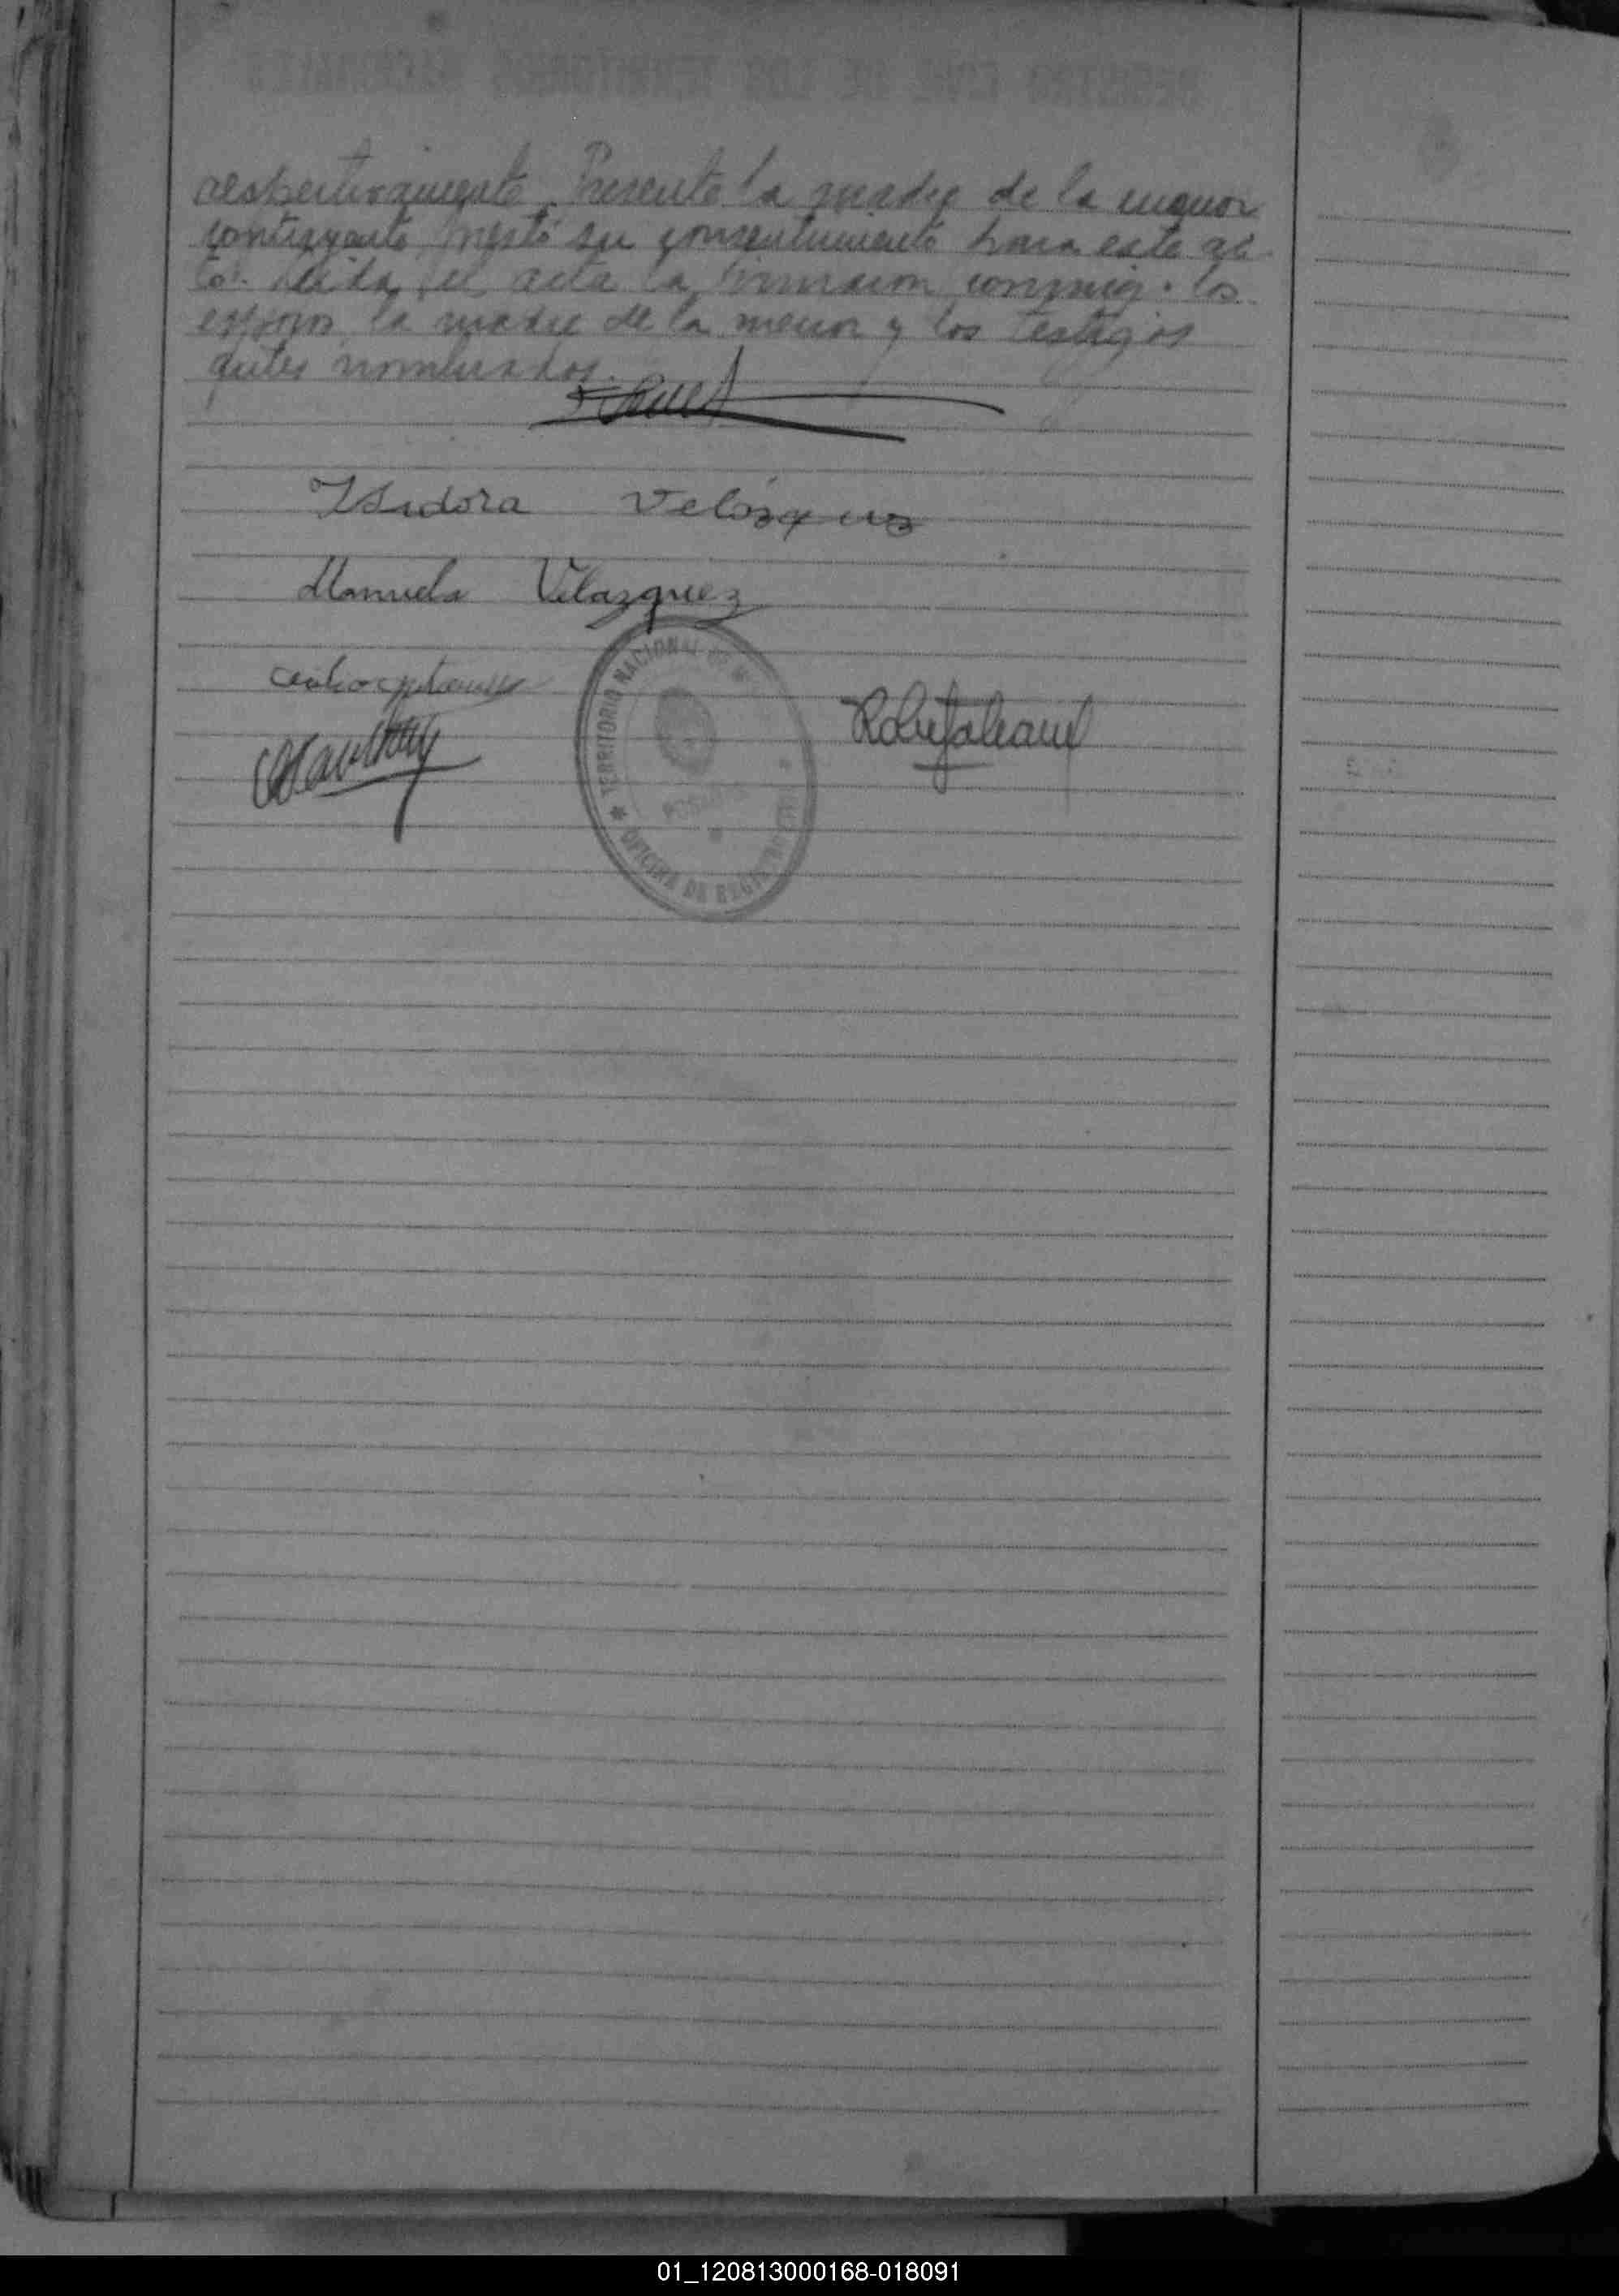 respectivamente. Presente la madre de la menor
contrayente prestó su consentimiento para este ac-
to. Leída el acta la firmaron conmigo los
esposos la madre de la menor y los testigos
antes nombrados.
Isidora Velázquez
Manuela Velazquez
TERRITORIO NACIONAL DE
POSADAS
OFICINA DE REGISTRO
01_120813000168-018091